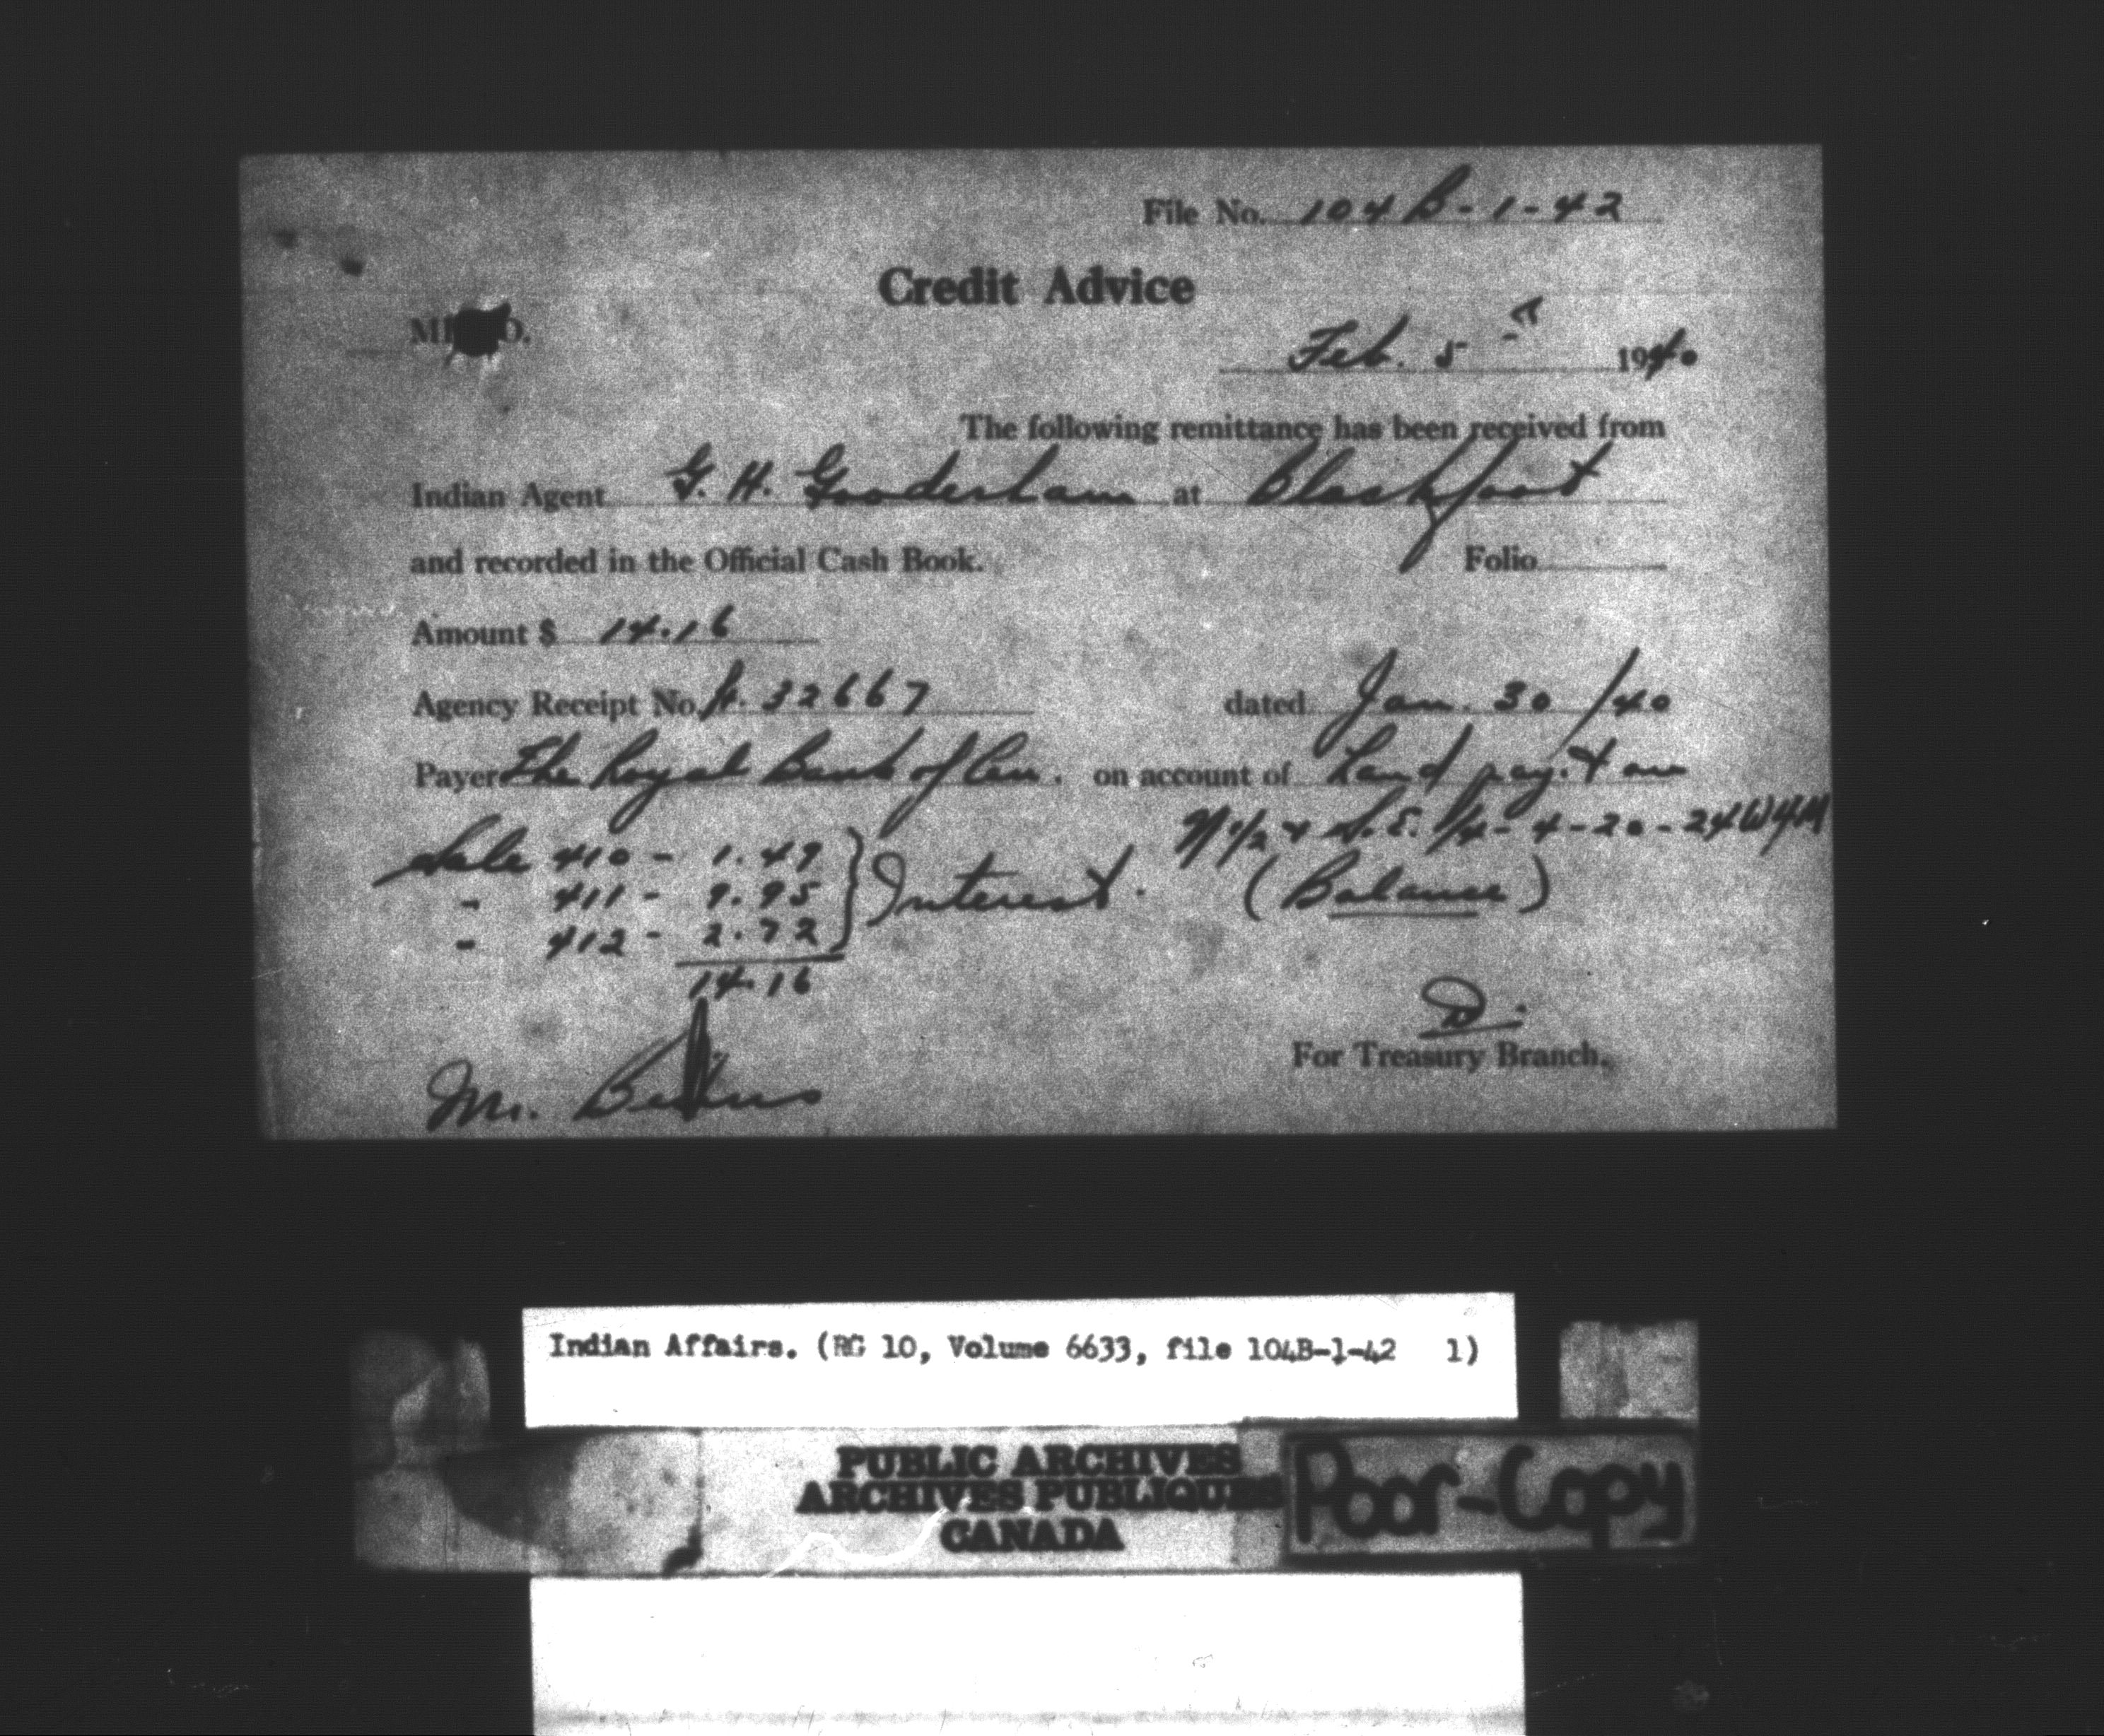 File No. 104 B-1-42
Credit Advice
Feb. 5 1940
The following remittance has been received from
Indian Agent G. H. Gooderham at Blackfoot
and recorded in the Official Cash Book. Folio
Amount $ 14.16
Agency Receipt No. 32667 dated Jan. 30/40
Payer The Royal Bank of Can. on account of Land pay't on
N 1/2 & S.E. 1/4 - 4-20-24W4M
Sale 410 - 1.49
" 411 - 9.95 } Interest. (Balance)
" 412 - 2.72
14.16
D.
For Treasury Branch.
Mr.
Indian Affairs. (RG 10, Volume 6633, file 104B-1-42 1)
PUBLIC ARCHIVES
ARCHIVES PUBLIQUES
CANADA
Poor-Copy